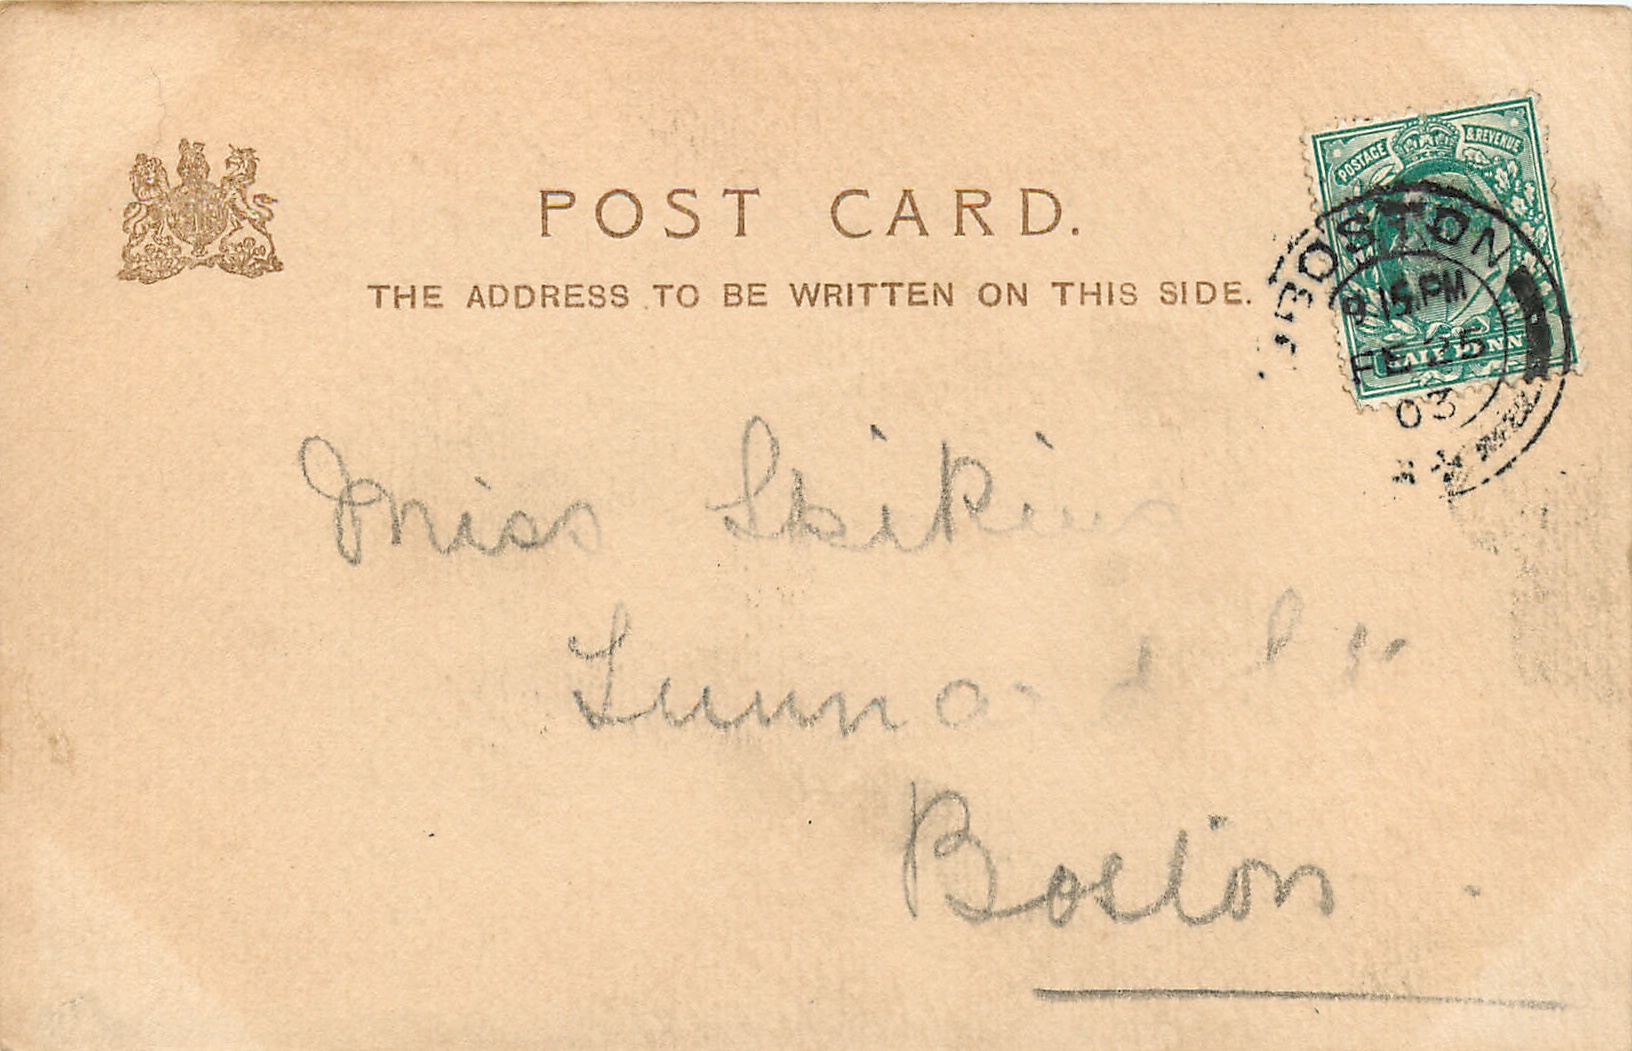 POST CARD.
THE ADDRESS TO BE WRITTEN ON THIS SIDE.
POSTAGE & REVENUE
BOSTON
9.15 PM
FE 25
03
HALFPENNY
Miss
Boston